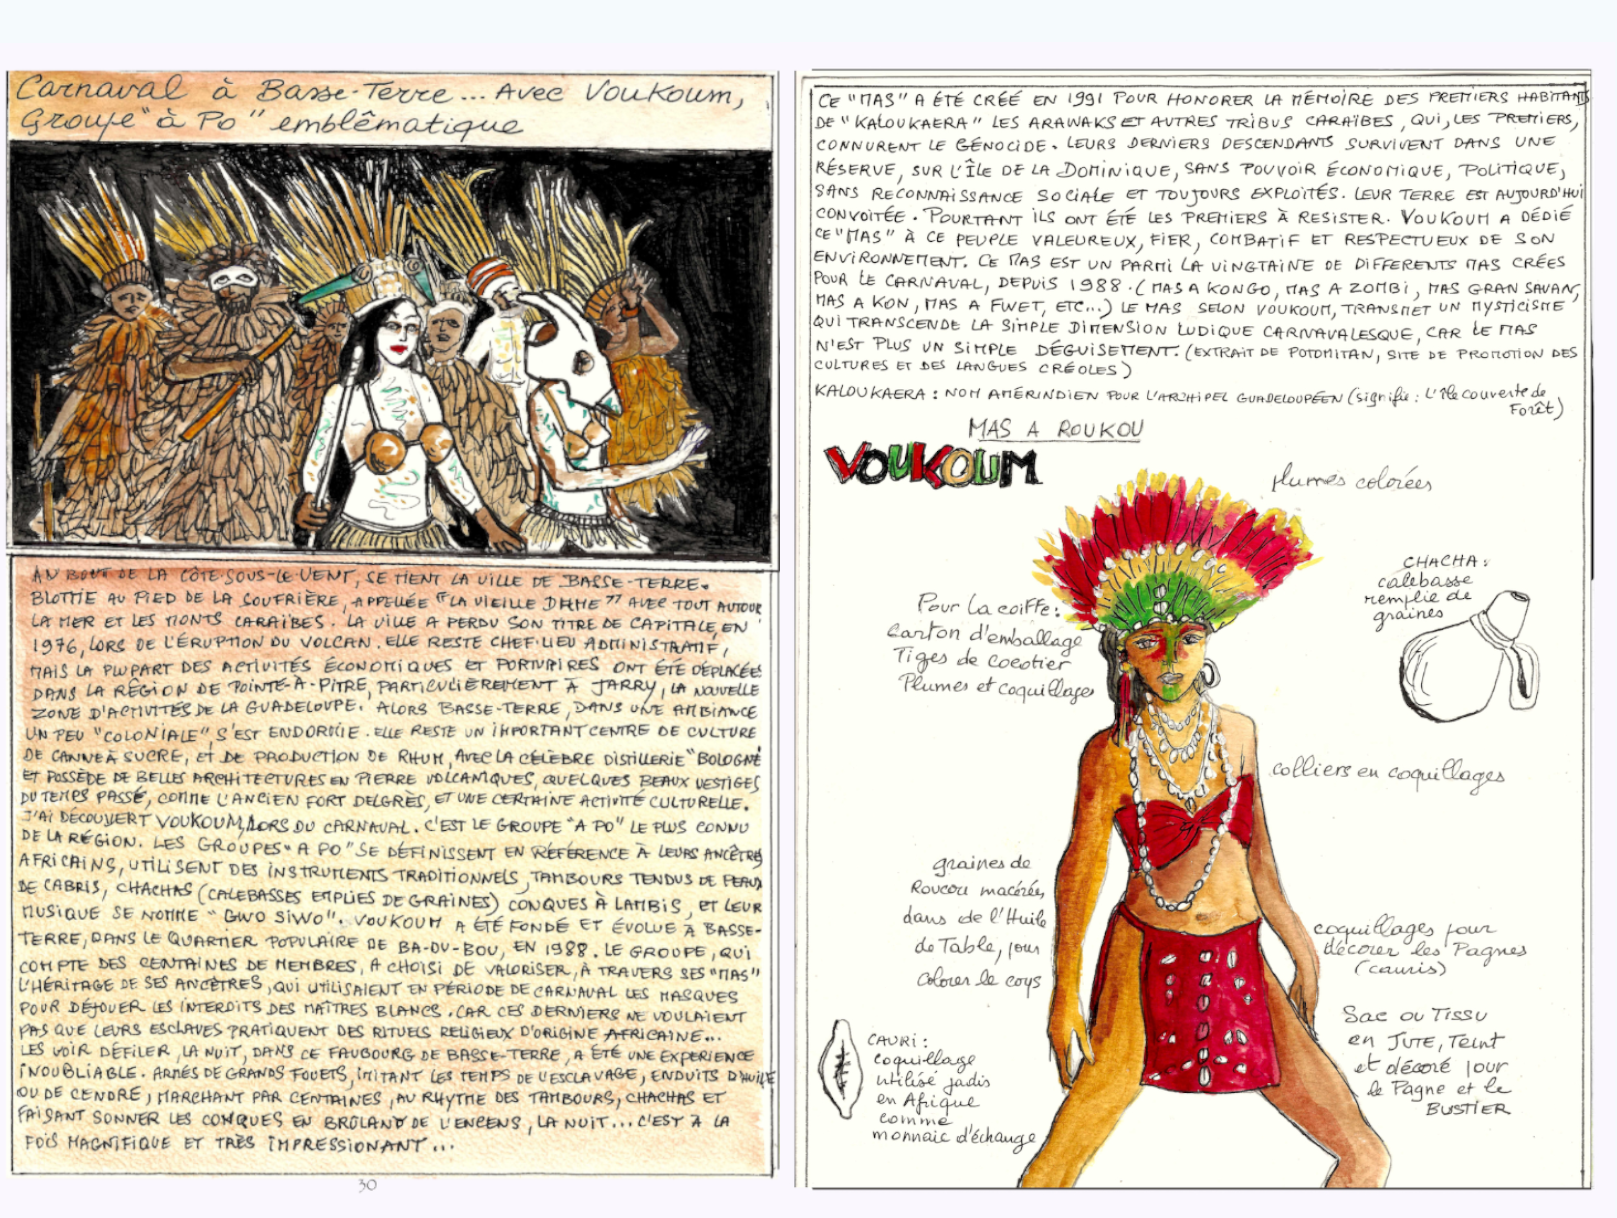 Carnaval à Basse-Terre... Avec Voukoum,
Groupe "à Po" emblêmatique
AU BOUT DE LA CÔTE-SOUS-LE-VENT, SE TIENT LA VILLE DE BASSE-TERRE.
BLOTTIE AU PIED DE LA SOUFRIÈRE, APPELLÉE "LA VIEILLE DAME" AVEC TOUT AUTOUR
LA MER ET LES MONTS CARAÏBES. LA VILLE A PERDU SON TITRE DE CAPITALE, EN
1976, LORS DE L'ÉRUPTION DU VOLCAN. ELLE RESTE CHEF-LIEU ADMINISTRATIF,
MAIS LA PLUPART DES ACTIVITÉS ÉCONOMIQUES ET PORTUAIRES ONT ÉTÉ DÉPLACÉES
DANS LA RÉGION DE POINTE-À-PITRE, PARTICULIÈREMENT À JARRY, LA NOUVELLE
ZONE D'ACTIVITÉS DE LA GUADELOUPE. ALORS BASSE-TERRE, DANS UNE AMBIANCE
UN PEU "COLONIALE" S'EST ENDORMIE. ELLE RESTE UN IMPORTANT CENTRE DE CULTURE
DE CANNE À SUCRE, ET DE PRODUCTION DE RHUM, AVEC LA CÉLÈBRE DISTILLERIE "BOLOGNE"
ET POSSÈDE DE BELLES ARCHITECTURES EN PIERRE VOLCANIQUES, QUELQUES BEAUX VESTIGES
DU TEMPS PASSÉ, COMME L'ANCIEN FORT DELGRÈS, ET UNE CERTAINE ACTIVITÉ CULTURELLE.
J'AI DÉCOUVERT VOUKOUM, LORS DU CARNAVAL. C'EST LE GROUPE "A PO" LE PLUS CONNU
DE LA RÉGION. LES GROUPES "A PO" SE DÉFINISSENT EN RÉFÉRENCE À LEURS ANCÊTRES
AFRICAINS, UTILISENT DES INSTRUMENTS TRADITIONNELS, TAMBOURS TENDUS DE PEAUX
DE CABRIS, CHACHAS (CALEBASSES EMPLIES DE GRAINES) CONQUES À LAMBIS, ET LEUR
MUSIQUE SE NOMME "GWO SIWO". VOUKOUM A ÉTÉ FONDÉ ET ÉVOLUE À BASSE-
TERRE, DANS LE QUARTIER POPULAIRE DE BA-DU-BOU, EN 1988. LE GROUPE, QUI
COMPTE DES CENTAINES DE MEMBRES, A CHOISI DE VALORISER, À TRAVERS SES "MAS"
L'HÉRITAGE DE SES ANCÊTRES, QUI UTILISAIENT EN PÉRIODE DE CARNAVAL LES MASQUES
POUR DÉJOUER LES INTERDITS DES MAÎTRES BLANCS. CAR CES DERNIERS NE VOULAIENT
PAS QUE LEURS ESCLAVES PRATIQUENT DES RITUELS RELIGIEUX D'ORIGINE AFRICAINE...
LES VOIR DÉFILER, LA NUIT, DANS CE FAUBOURG DE BASSE-TERRE, A ÉTÉ UNE EXPERIENCE
INOUBLIABLE. ARMÉS DE GRANDS FOUETS, IMITANT LES TEMPS DE L'ESCLAVAGE, ENDUITS D'HUILE
OU DE CENDRE, MARCHANT PAR CENTAINES, AU RHYTME DES TAMBOURS, CHACHAS ET
FAISANT SONNER LES CONQUES EN BRÛLANT DE L'ENCENS, LA NUIT... C'EST À LA
FOIS MAGNIFIQUE ET TRÈS IMPRESSIONANT...
30
CE "MAS" A ÉTÉ CRÉÉ EN 1991 POUR HONORER LA MÉMOIRE DES PREMIERS HABITANTS
DE "KALOUKAERA" LES ARAWAKS ET AUTRES TRIBUS CARAÏBES, QUI, LES PREMIERS,
CONNURENT LE GÉNOCIDE. LEURS DERNIERS DESCENDANTS SURVIVENT DANS UNE
RÉSERVE, SUR L'ÎLE DE LA DOMINIQUE, SANS POUVOIR ÉCONOMIQUE, POLITIQUE,
SANS RECONNAISSANCE SOCIALE ET TOUJOURS EXPLOITÉS. LEUR TERRE EST AUJOURD'HUI
CONVOITÉE. POURTANT ILS ONT ÉTÉ LES PREMIERS À RESISTER. VOUKOUM A DÉDIÉ
CE "MAS" À CE PEUPLE VALEUREUX, FIER, COMBATIF ET RESPECTUEUX DE SON
ENVIRONNEMENT. CE MAS EST UN PARMI LA VINGTAINE DE DIFFERENTS MAS CRÉES
POUR LE CARNAVAL, DEPUIS 1988. (MAS A KONGO, MAS A ZOMBI, MAS GRAN SAVAN,
MAS A KON, MAS A FWET, ETC...) LE MAS SELON VOUKOUM, TRANSMET UN MYSTICISME
QUI TRANSCENDE LA SIMPLE DIMENSION LUDIQUE CARNAVALESQUE, CAR LE MAS
N'EST PLUS UN SIMPLE DÉGUISEMENT. (EXTRAIT DE POTOMITAN, SITE DE PROMOTION DES
CULTURES ET DES LANGUES CRÉOLES)
KALOUKAERA : NOM AMÉRINDIEN POUR L'ARCHIPEL GUADELOUPÉEN (signifie : L'île couverte de
Forêt)
MAS A ROUKOU
VOUKOUM
plumes colorées
CHACHA :
calebasse
remplie de
graines
Pour la coiffe :
Carton d'emballage
Tiges de cocotier
Plumes et coquillages
colliers en coquillages
graines de
Roucou macérées
dans de l'Huile
de Table, pour
colorer le coys
coquillages pour
décorer les Pagnes
(cauris)
Sac ou Tissu
en JUTE, Teint
et décoré pour
le Pagne et le
BUSTIER
CAURI :
coquillage
utilisé jadis
en Afrique
comme
monnaie d'échange